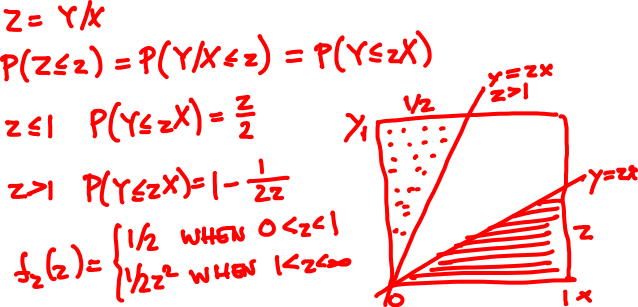 Z = Y/X
P(Z≤z) = P(Y/X≤z) = P(Y≤zX)
z≤1 P(Y≤zX) = z/2
z>1 P(Y≤zX) = 1 - 1/2z
f_z(z) = { 1/2 WHEN 0<z<1
1/2z² WHEN 1<z<∞
y=zx
z>1
1/z
Y 1
y=zx
z
0
1 x